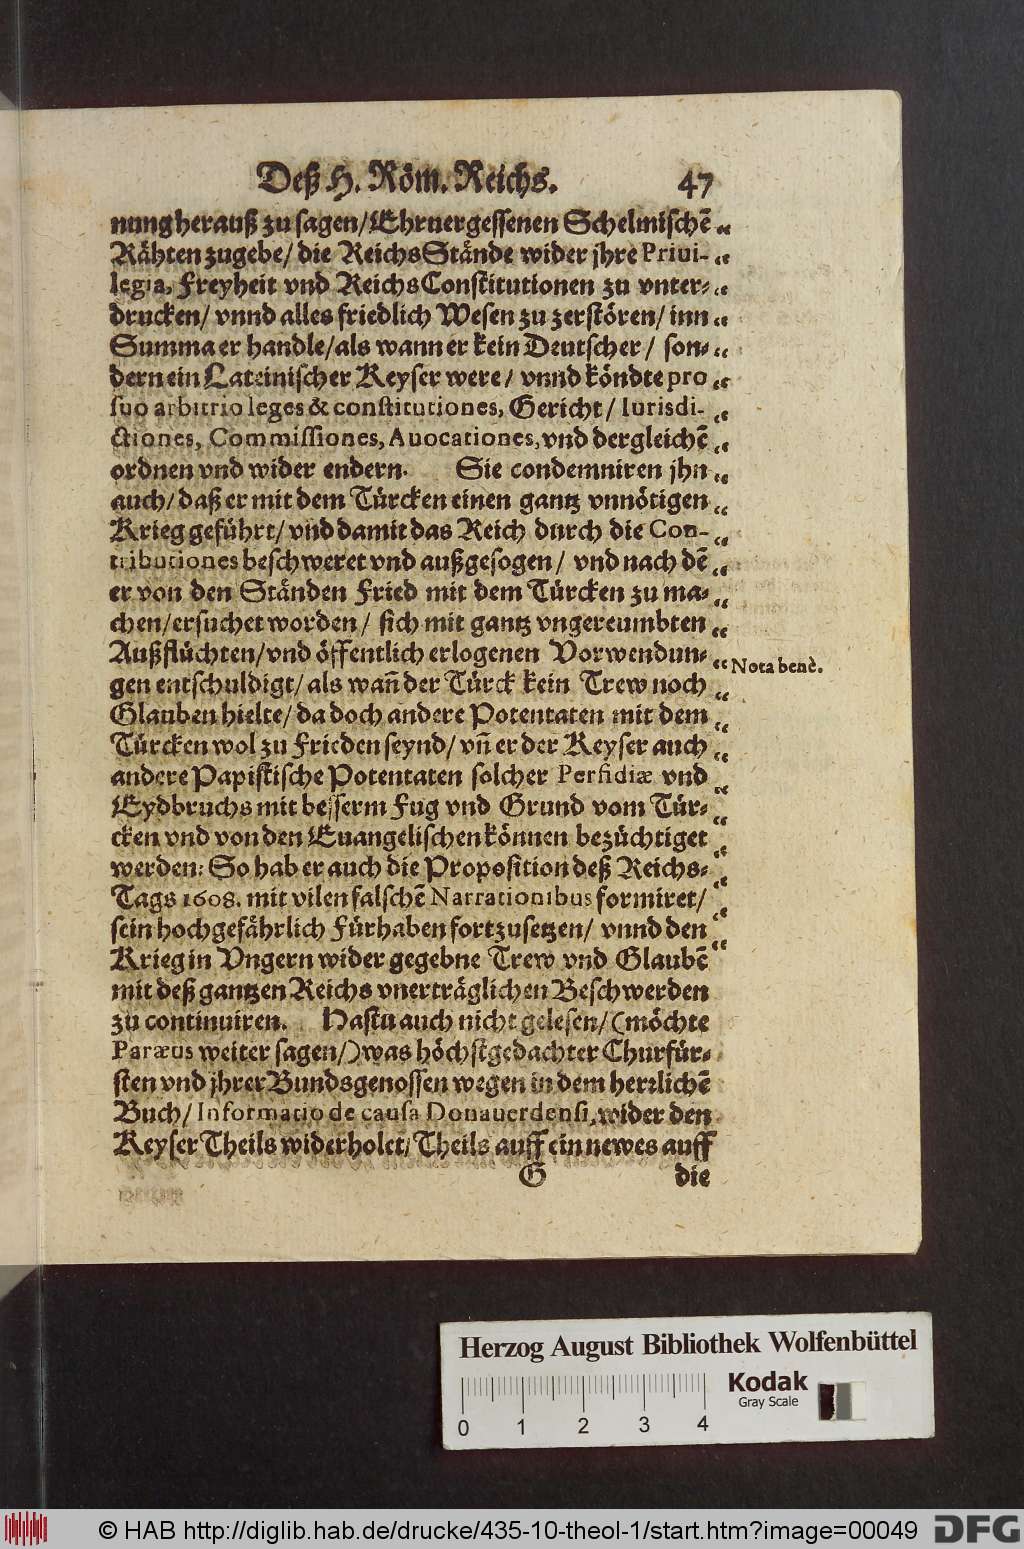 Deß H. Röm. Reichs. 47
nung herauß zu sagen/ Ehruergessenen Schelmischẽ „
Rähten zugebe/ die ReichsStände wider jhre Priui- „
legia, Freyheit vnd ReichsConstitutionen zu vnter- „
drucken/ vnnd alles friedlich Wesen zu zerstören/ inn „
Summa er handle/ als wann er kein Deutscher/ son- „
dern ein Lateinischer Keyser were/ vnnd köndte pro „
suo arbitrio leges & constitutiones, Gericht/ Iurisdi- „
ctiones, Commissiones, Auocationes, vnd dergleichẽ „
ordnen vnd wider endern. Sie condemniren jhn „
auch/ daß er mit dem Türcken einen gantz vnnötigen „
Krieg geführt/ vñd damit das Reich durch die Con- „
tributiones beschweret vnd außgesogen/ vnd nach dẽ „
er von den Ständen Fried mit dem Türcken zu ma- „
chen/ ersuchet worden/ sich mit gantz vngereumbten „
Außflüchten/ vnd öffentlich erlogenen Vorwendun- „ Nota benè.
gen entschuldigt/ als wañ der Türck kein Trew noch „
Glauben hielte/ da doch andere Potentaten mit dem „
Türcken wol zu Frieden seynd/ vñ er der Keyser auch „
andere Papistische Potentaten solcher Perfidiæ vnd „
Eydbruchs mit besserm Fug vnd Grund vom Tür- „
cken vnd von den Euangelischen können bezüchtiget „
werden: So hab er auch die Proposition deß Reichs- „
Tags 1608. mit vilen falschẽ Narrationibus formiret/ „
sein hochgefährlich Fürhaben fortzusetzen/ vnnd den „
Krieg in Vngern wider gegebne Trew vnd Glaubẽ
mit deß gantzen Reichs vnerträglichen Beschwerden
zu continuiren. Hastu auch nicht gelesen/ (möchte
Paræus weiter sagen/) was höchstgedachter Churfür-
sten vnd jhrer Bundsgenossen wegen in dem herrlichẽ
Buch/ Informatio de causa Donauerdensi, wider den
Keyser Theils widerholet/ Theils auff ein newes auff
G die
Herzog August Bibliothek Wolfenbüttel
Kodak
Gray Scale
0 1 2 3 4
© HAB http://diglib.hab.de/drucke/435-10-theol-1/start.htm?image=00049 DFG